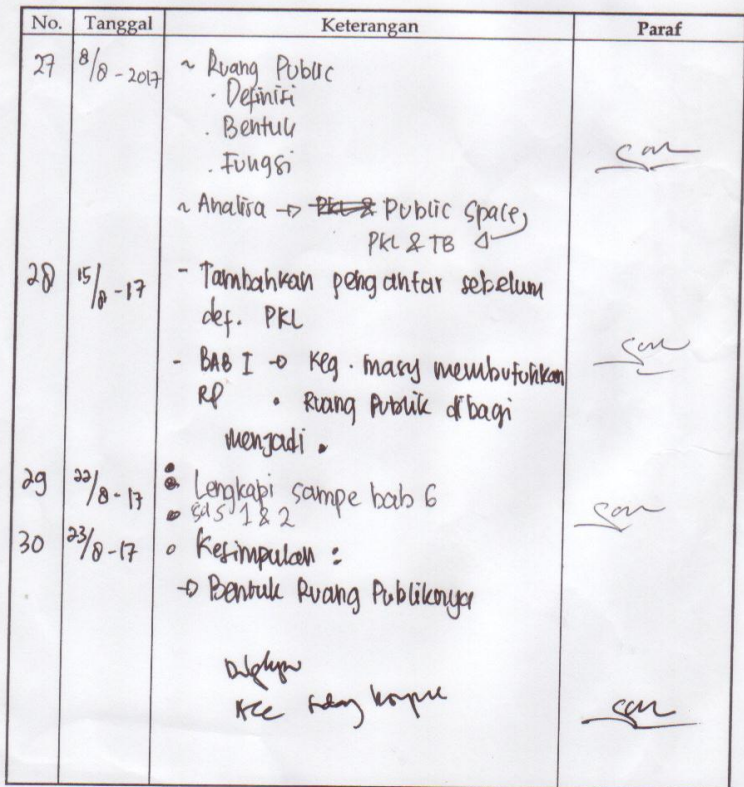 No. Tanggal Keterangan Paraf
27 8/8-2017 ~ Ruang Public
· Definisi
· Bentuk
· Fungsi
~ Analisa → PKL & Public Space,
PKL & TB
28 15/8-17 - Tambahkan pengantar sebelum
def. PKL
- BAB I → Keg. masy membutuhkan
RP • Ruang Publik dibagi
menjadi •
29 22/8-17 • Lengkapi sampe bab 6
• 1 & 2
30 23/8-17 • Kesimpulan :
→ Bentuk Ruang Publiknya
Acc